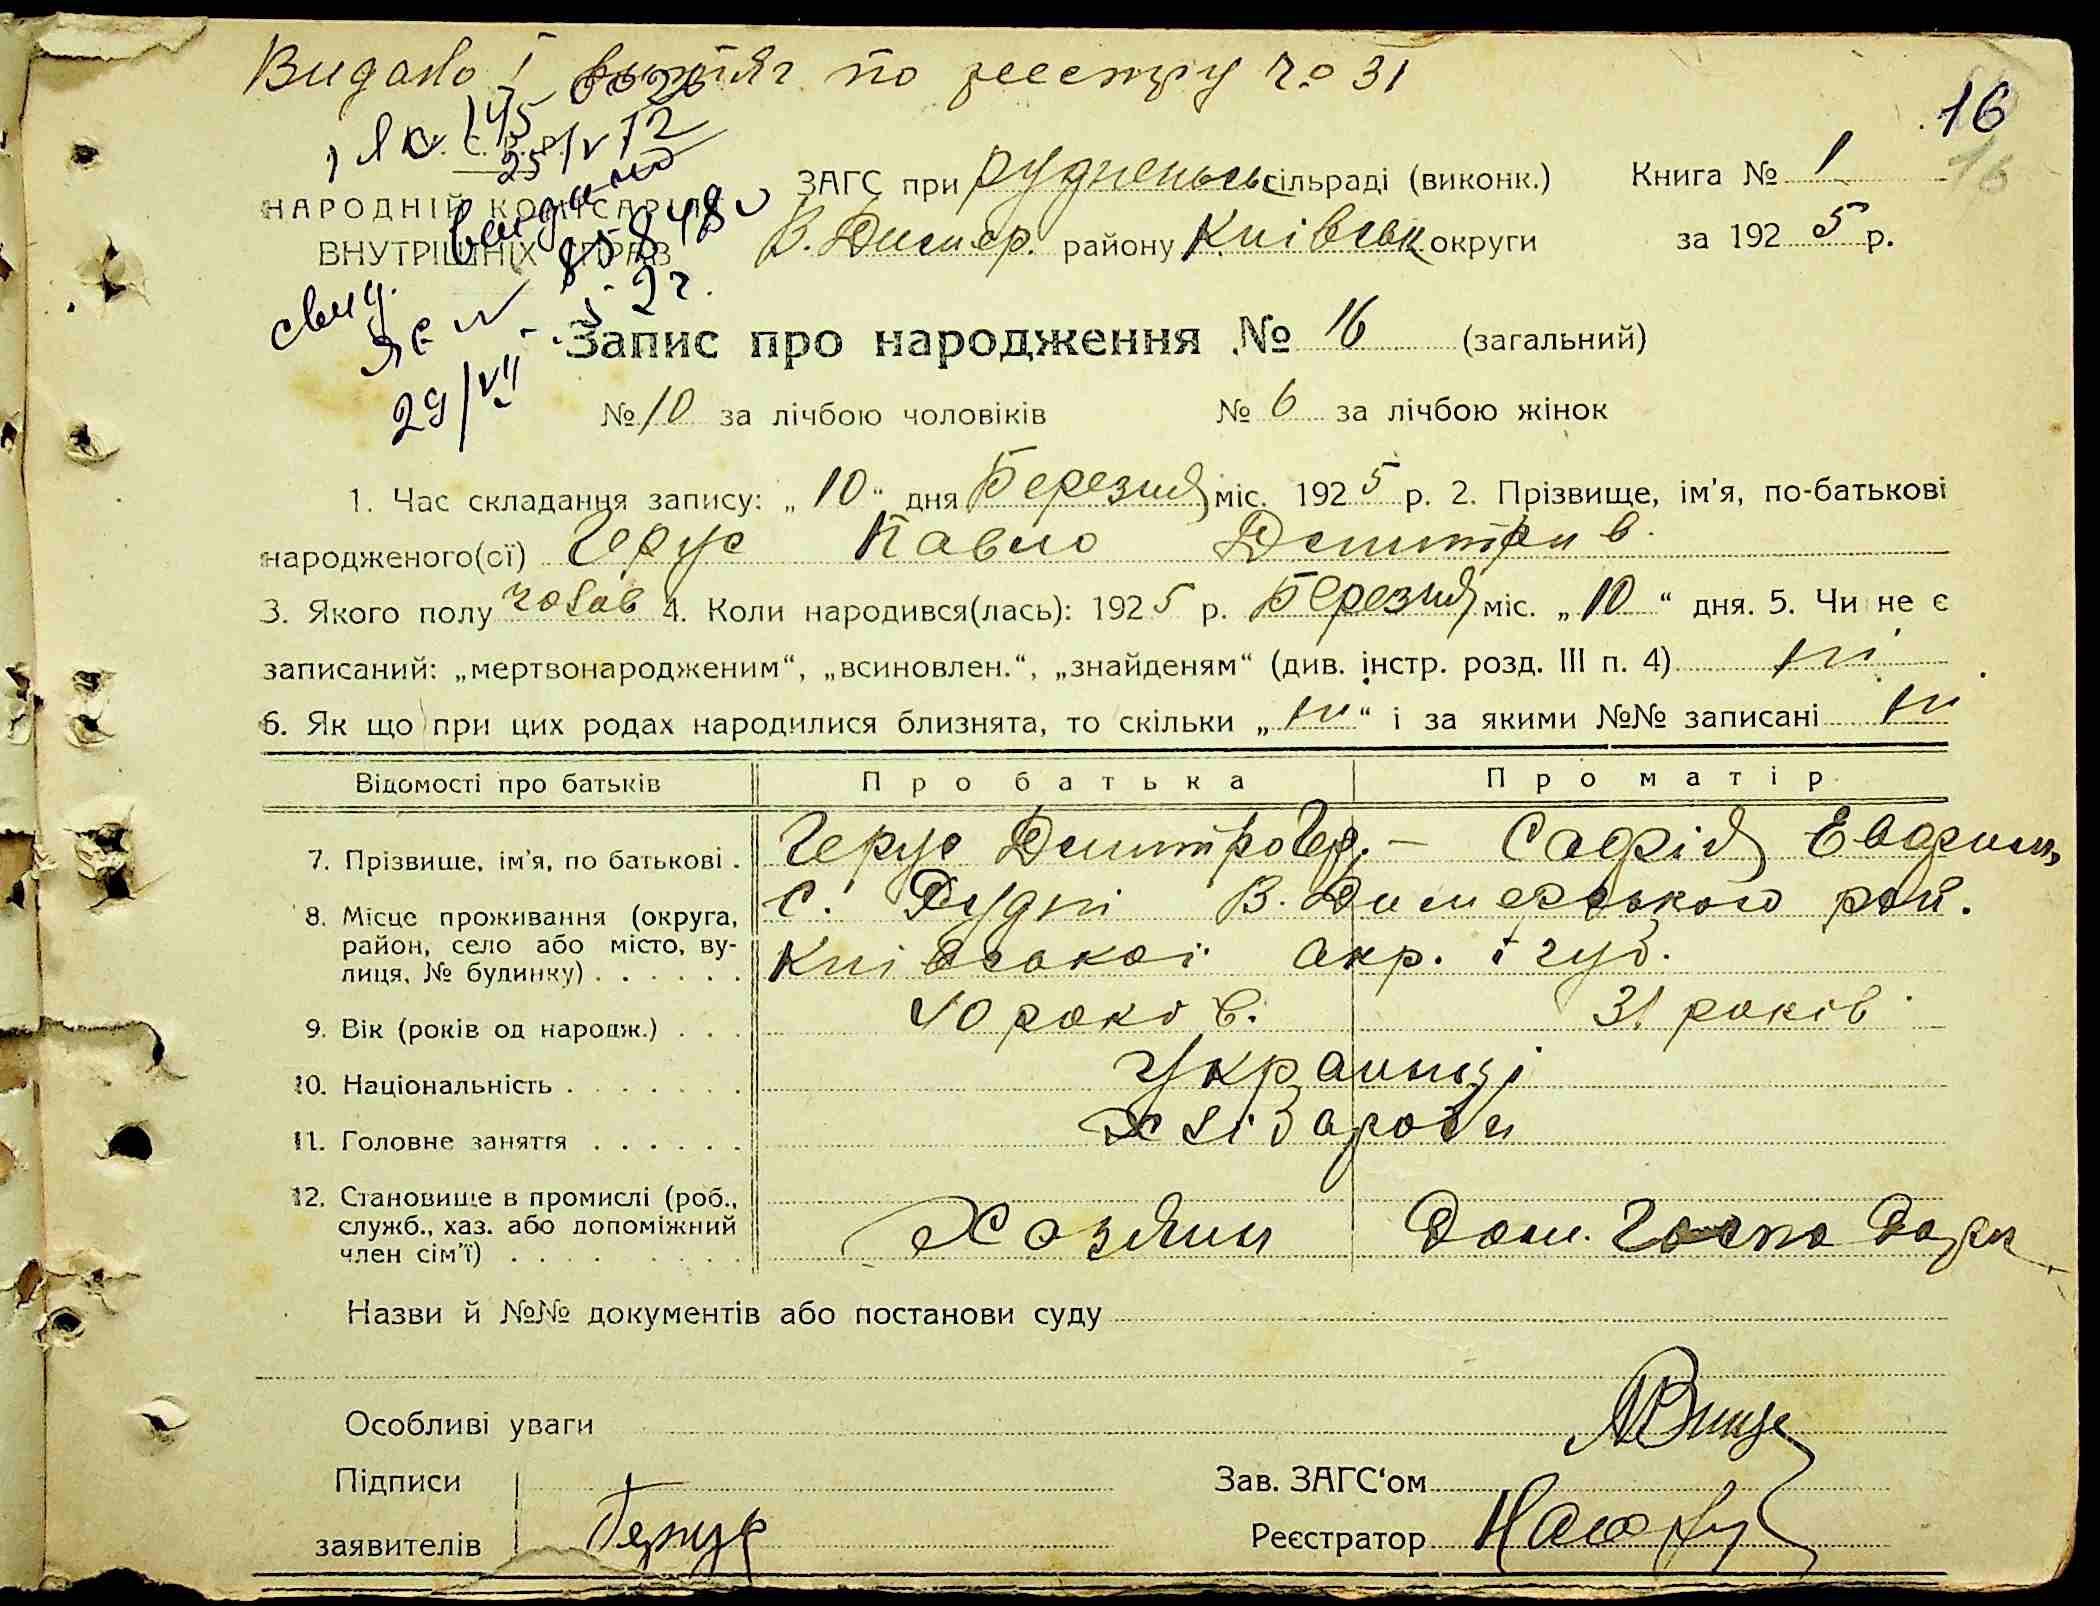 Видано 1 витяг по реестру ч. 31
16
16
1 Як. 145
25/V 72
видано
свид.
29/VII - 52 г.
НАРОДНІЙ КОМІСАРІЯТ
ВНУТРІШНІХ СПРАВ
ЗАГС при Рудненськ сільраді (виконк.) Книга № 1
В. Димер. району Київськ округи за 192 5 р.
Запис про народження № 16 (загальний)
№ 10 за лічбою чоловіків № 6 за лічбою жінок
1. Час складання запису: „ 10 “ дня Березня міс. 192 5 р. 2. Прізвище, ім'я, по-батькові
народженого(сї) Герус Павло Дмитрив.
3. Якого полу чолов 4. Коли народився(лась): 192 5 р. Березня міс. „ 10 “ дня. 5. Чи не є
записаний: „мертвонародженим“, „всиновлен.“, „знайденям“ (див. інстр. розд. III п. 4) ні
6. Як що при цих родах народилися близнята, то скільки „ ні “ і за якими №№ записані ні
Відомості про батьків Про батька Про матір
7. Прізвище, ім'я, по батькові . Герус Дмитро Гер. — Софія
8. Місце проживання (округа, район, село або місто, вулиця, № будинку) . . . . . . с. Рудні В. Димерського рай.
Київської окр. і губ.
9. Вік (років од народж.) . . . 40 років. 31 років
10. Національність . . . . . . . Украинці
11. Головне заняття . . . . . . Хлібороби
12. Становище в промислі (роб., служб., хаз. або допоміжний член сім'ї) . . . . . . . . . Хозяин Дом. господарк
Назви й №№ документів або постанови суду
Особливі уваги
Підписи Зав. ЗАГС'ом
заявителів Герус Реєстратор